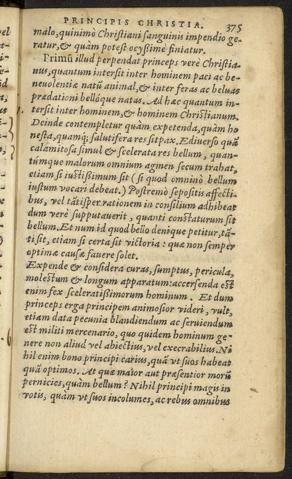 PRINCIPIS CHRISTIA. 375
malo, quinimò Christiani sanguinis impendio ge
ratur, & quàm potest ocyssimè finiatur.
Primũ illud perpendat princeps verè Christia-
nus, quantum intersit inter hominem paci ac be-
neuolentiæ natũ animal, & inter feras ac beluas
prædationi bellóque natas. Ad hæc quantum in-
tersit inter hominem, & hominem Christianum.
Deinde contempletur quàm expetenda, quàm ho
nesta, quamq; salutifera res sit pax. E diuerso quã
calamitosa simul & scelerata res bellum, quan-
túmque malorum omnium agmen secum trahat,
etiam si iustissimum sit (si quod omninò bellum
iustum vocari debeat.) Postremò sepositis affecti-
bus, vel tãtisper rationem in consilium adhibeat
dum verè supputauerit, quanti constaturum sit
bellum. Et num id quod bello denique petitur, tã-
ti sit, etiam si certa sit victoria: quæ non semper
optimæ causæ fauere solet.
Expende & considera curas, sumptus, pericula,
molestum & longum apparatum: accersenda est
enim fex sceleratissimorum hominum. Et dum
princeps erga principem animosior videri, vult,
etiam data pecunia blandiendum ac seruiendum
est militi mercenario, quo quidem hominum ge-
nere non aliud vel abiectius, vel execrabilius. Ni
hil enim bono principi carius, quã vt suos habeat
quã optimos. At quæ maior aut præsentior morũ
pernicies, quàm bellum? Nihil principi magis in
votis, quàm vt suos incolumes, ac rebus omnibus